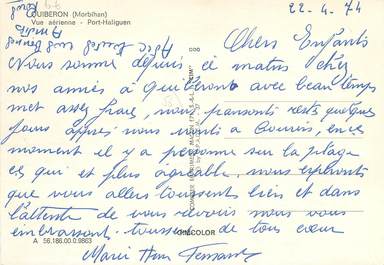 QUIBERON (Morbihan)
Vue aérienne - Port-Haliguen
22-4-74
Chers Enfants
Nous somme depuis ce matin chez
nos amies à Quiberont avec beau temps
met assez frais, nous pensont resté quelques
jours après nous
moment il y a personne sur la plage
ce qui et plus agréable, nous espéront
que vous allers toussent bien et dans
l'attente de vous revoir nous vous
embrassont tousse de tous cœur
A 56.186.00.0.9863
COMBICOLOR
Marie